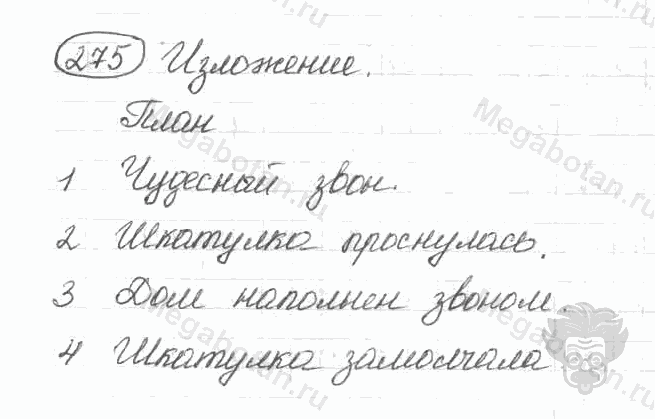 275 Изложение.
План
1 Чудесный звон.
2 Шкатулка проснулась.
3 Дом наполнен звоном.
4 Шкатулка замолчала
Megabotan.ru
Megabotan.ru
Megabotan.ru
Megabotan.ru